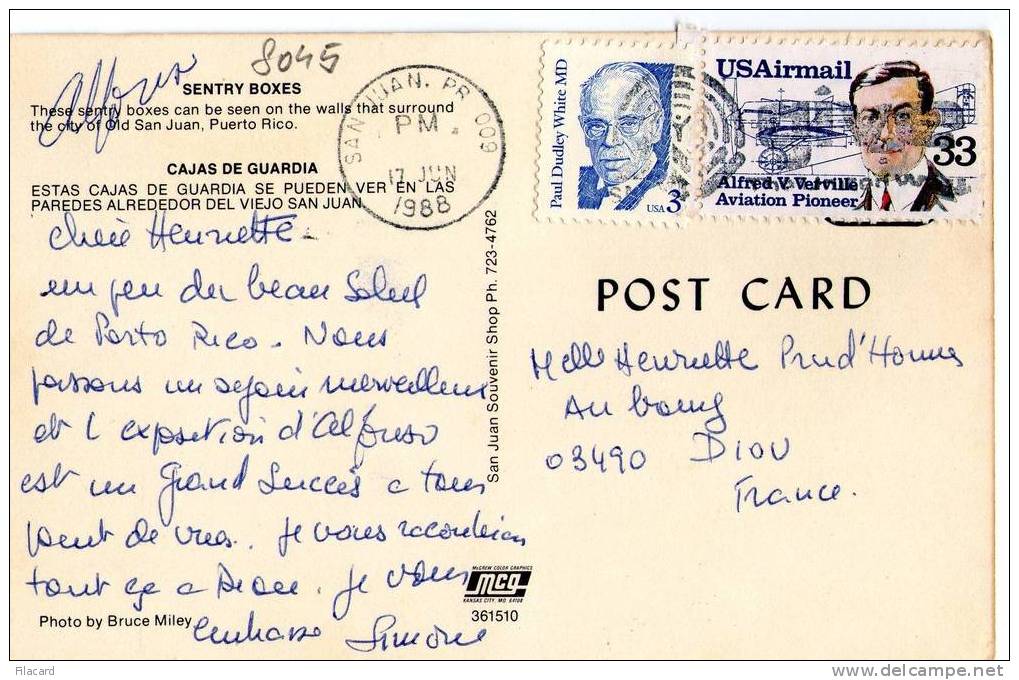 Alfonso
8045
SENTRY BOXES
These sentry boxes can be seen on the walls that surround
the city of Old San Juan, Puerto Rico.
CAJAS DE GUARDIA
ESTAS CAJAS DE GUARDIA SE PUEDEN VER EN LAS
PAREDES ALREDEDOR DEL VIEJO SAN JUAN
Chère Henriette
un peu du beau Soleil
de Porto Rico. Nous
passons un séjour merveilleux
et l'exposition d'Alfonso
est un Grand Succès a tous
point de vues. Je vous raconterai
tout ça a Diou. Je vous
embrasse Simone
Photo by Bruce Miley
San Juan Souvenir Shop Ph. 723-4762
McGREW COLOR GRAPHICS
mcg
KANSAS CITY, MO. 64108
361510
SAN JUAN, PR 009
PM
17 JUN
1988
Paul Dudley White MD
USA 3
USAirmail
33
Alfred V. Verville
Aviation Pioneer
POST CARD
Melle Henriette Prud'Homme
Au bourg
03490 DIOU
France.
Filacard
www.delcampe.net